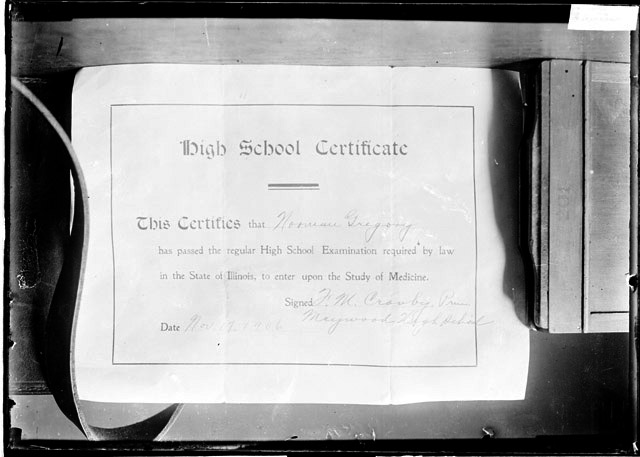 High School Certificate
This Certifies that Norman Gregory
has passed the regular High School Examination required by law
in the State of Illinois, to enter upon the Study of Medicine.
Signed F. M. Crosby, Prin.
Maywood High School
Date Nov. 19, 1906